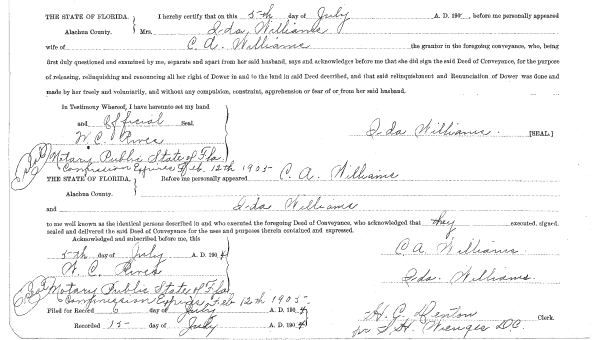 THE STATE OF FLORIDA. I hereby certify that on this 5th day of July A. D. 190 , before me personally appeared
Alachua County. Mrs. Ida Williams
wife of C. A. Williams the grantor in the foregoing conveyance, who, being
first duly questioned and examined by me, separate and apart from her said husband, says and acknowledges before me that she did sign the said Deed of Conveyance, for the purpose
of releasing, relinquishing and renouncing all her right of Dower in and to the land in said Deed described, and that said relinquishment and Renunciation of Dower was done and
made by her freely and voluntarily, and without any compulsion, constraint, apprehension or fear of or from her said husband.
In Testimony Whereof, I have hereunto set my hand
and Official Seal,
W. C. Rives Ida Williams. [SEAL.]
Notary Public State of Fla.
Commission Expires Feb. 12th 1905
THE STATE OF FLORIDA. Before me personally appeared C. A. Williams
Alachua County.
and Ida Williams
to me well known as the identical persons described in and who executed the foregoing Deed of Conveyance, who acknowledged that they executed, signed,
sealed and delivered the said Deed of Conveyance for the uses and purposes therein contained and expressed.
Acknowledged and subscribed before me, this
5th day of July A. D. 1904 C. A. Williams.
W. C. Rives Ida Williams.
Notary Public State of Fla.
Commission Expires Feb 12th 1905.
Filed for Record 6 day of July A. D. 1904 H. C. Denton Clerk.
Recorded 15 day of July A. D. 1904 per S. H. Wienges D.C.